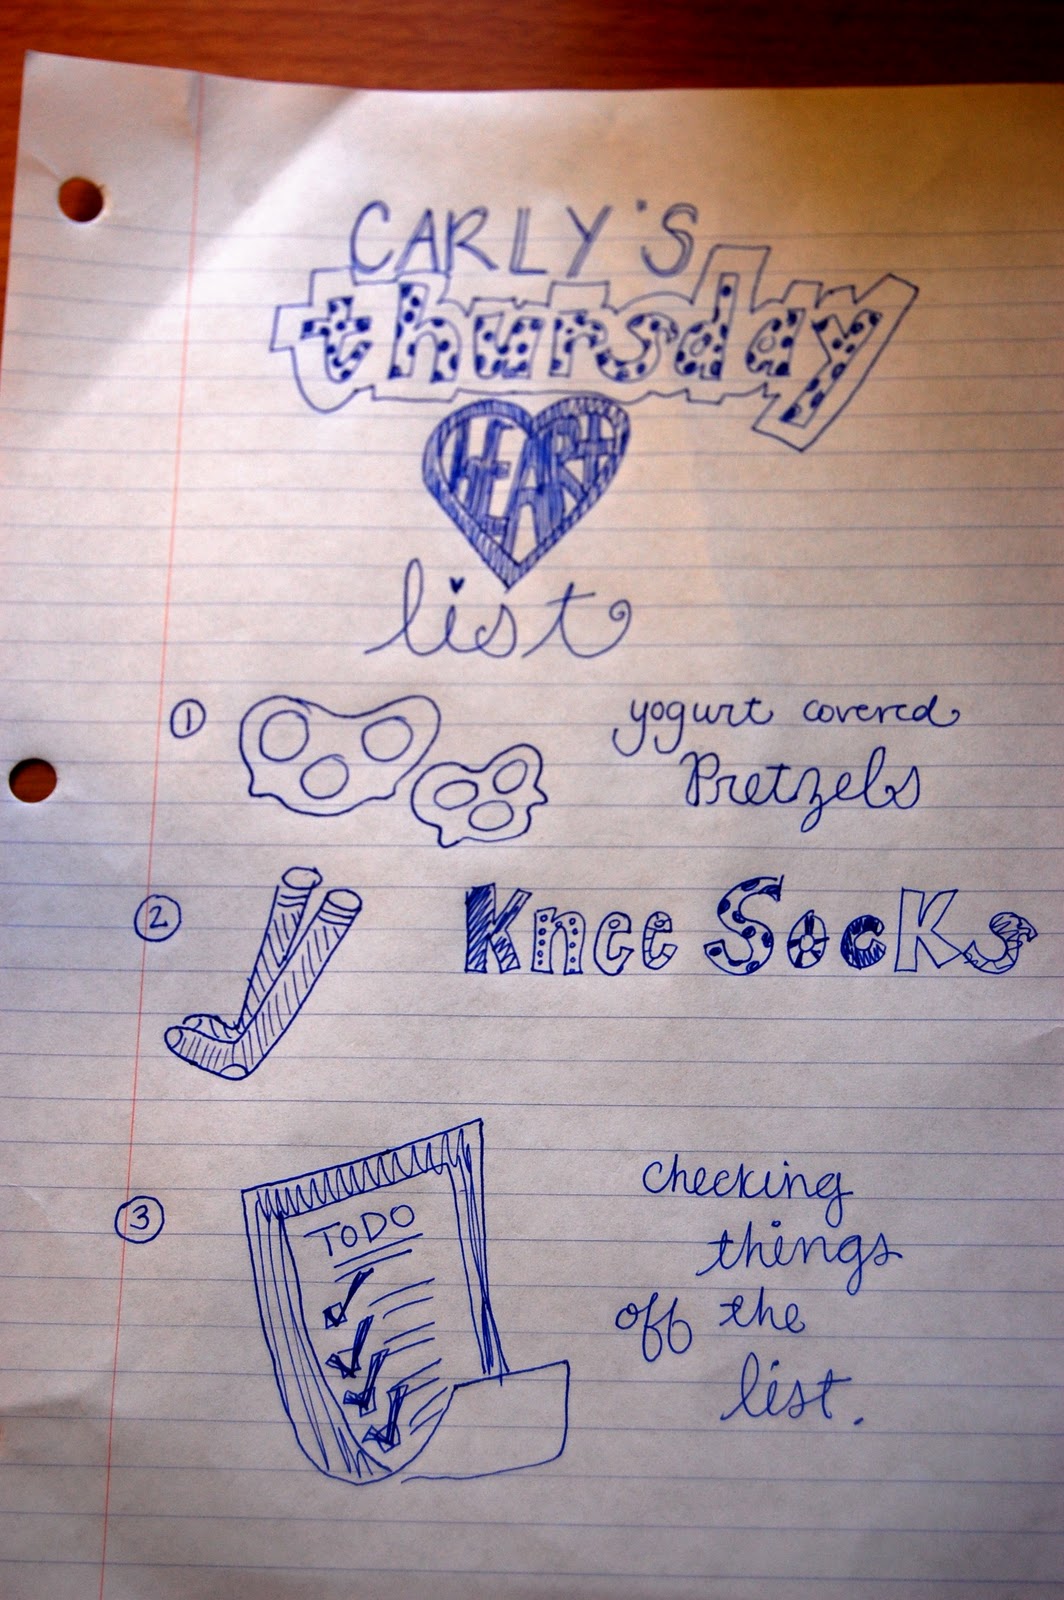 CARLY'S
thursday
HEART
list
1 yogurt covered
Pretzels
2 Knee Socks
3 TODO
checking
things
off the
list.